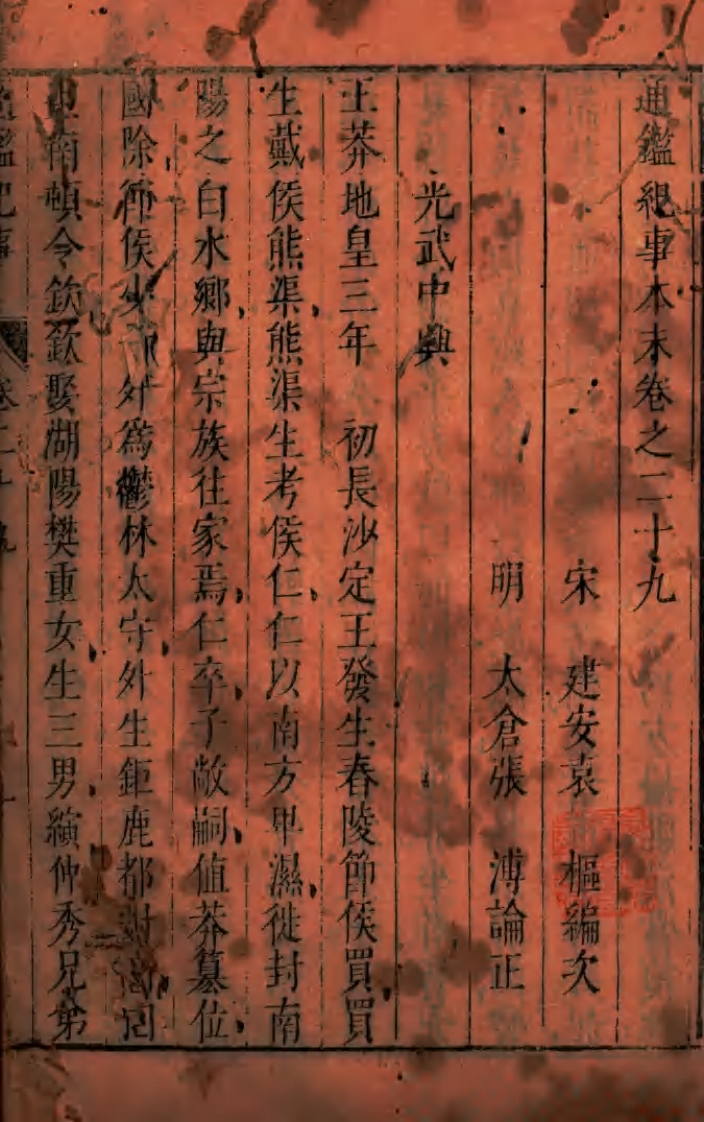 通鑑紀事本末卷之二十九
宋 建安袁 樞編次
明 太倉張 溥論正
光武中興
王莽地皇三年 初長沙定王發生舂陵節侯買買
生戴侯熊渠熊渠生考侯仁仁以南方卑濕徙封南
陽之白水鄉與宗族往家焉仁卒子敞嗣值莽篡位
國除節侯少子外爲鬱林太守外生鉅鹿都尉回回
生南頓令欽欽娶湖陽樊重女生三男縯仲秀兄弟